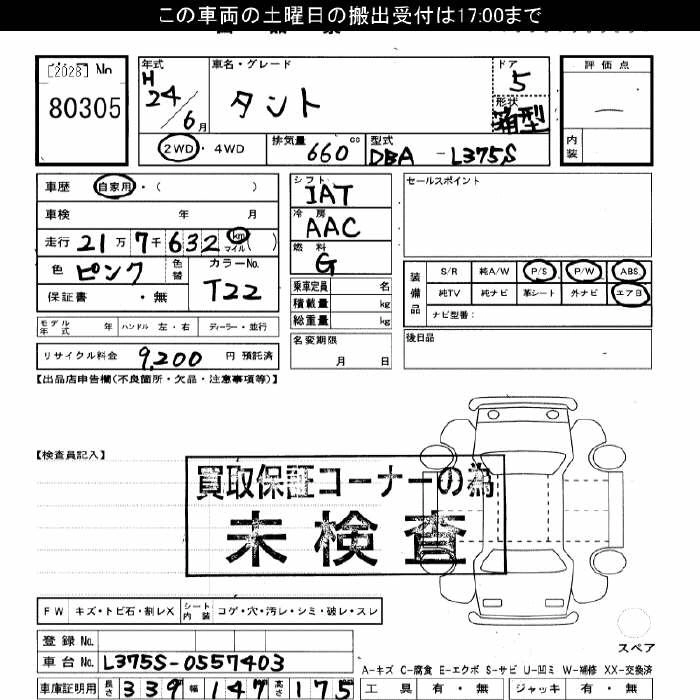 この車両の土曜日の搬出受付は17:00まで
[2028] No
80305
年式
H
24
6月
車名・グレード
タント
ドア
5
形状
箱型
評価点
―
内装
2WD ・ 4WD
排気量
660 cc
型式
DBA - L375S
車歴 自家用 ・( )
車検 年 月
走行 21万7千632 km マイル( )
色 ピンク
色替
カラーNo.
T22
保証書 ・無
モデル年式 年 ハンドル 左・右 ディーラー・並行
リサイクル料金 9,200 円 預託済
シフト
IAT
冷房
AAC
燃料
G
乗車定員 名
積載量 kg
総重量 kg
名変期限
月 日
セールスポイント
装備品
S/R 純A/W P/S P/W ABS
純TV 純ナビ 革シート 外ナビ エアB
ナビ型番:
後日品
【出品店申告欄(不良箇所・欠品・注意事項等)】
【検査員記入】
買取保証コーナーの為
未検査
FW キズ・トビ石・割レX
シート内装 コゲ・穴・汚レ・シミ・破レ・スレ
登録No.
車台No. L375S-0557403
車庫証明用 長さ 339 幅 147 高さ 175
スペア
A-キズ C-腐食 E-エクボ S-サビ U-凹ミ W-補修 XX-交換済
工具 有・無 ジャッキ 有・無